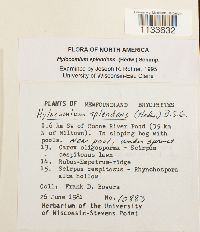 1133632
FLORA OF NORTH AMERICA
Hylocomium splendens (Hedw.) Schimp.
Examined by Joseph R. Rohrer, 1995
University of Wisconsin-Eau Claire
PLANTS OF NEWFOUNDLAND BRYOPHYTES
Hylocomium splendens (Hedw.) B.S.G.
1.6 km SW of Conne River Pond (35 km
N of Milltown). In sloping bog with
pools. Near pool, under spruce
13. Carex oligosperma - Scirpus
cespitosus lawn
14. Rubus-Empetrum-ridge
15. Scirpus cespitosus - Rhynchospora
alba hollow
Coll: Frank D. Bowers
26 June 1981 No. 10883
Herbarium of the University
of Wisconsin-Stevens Point